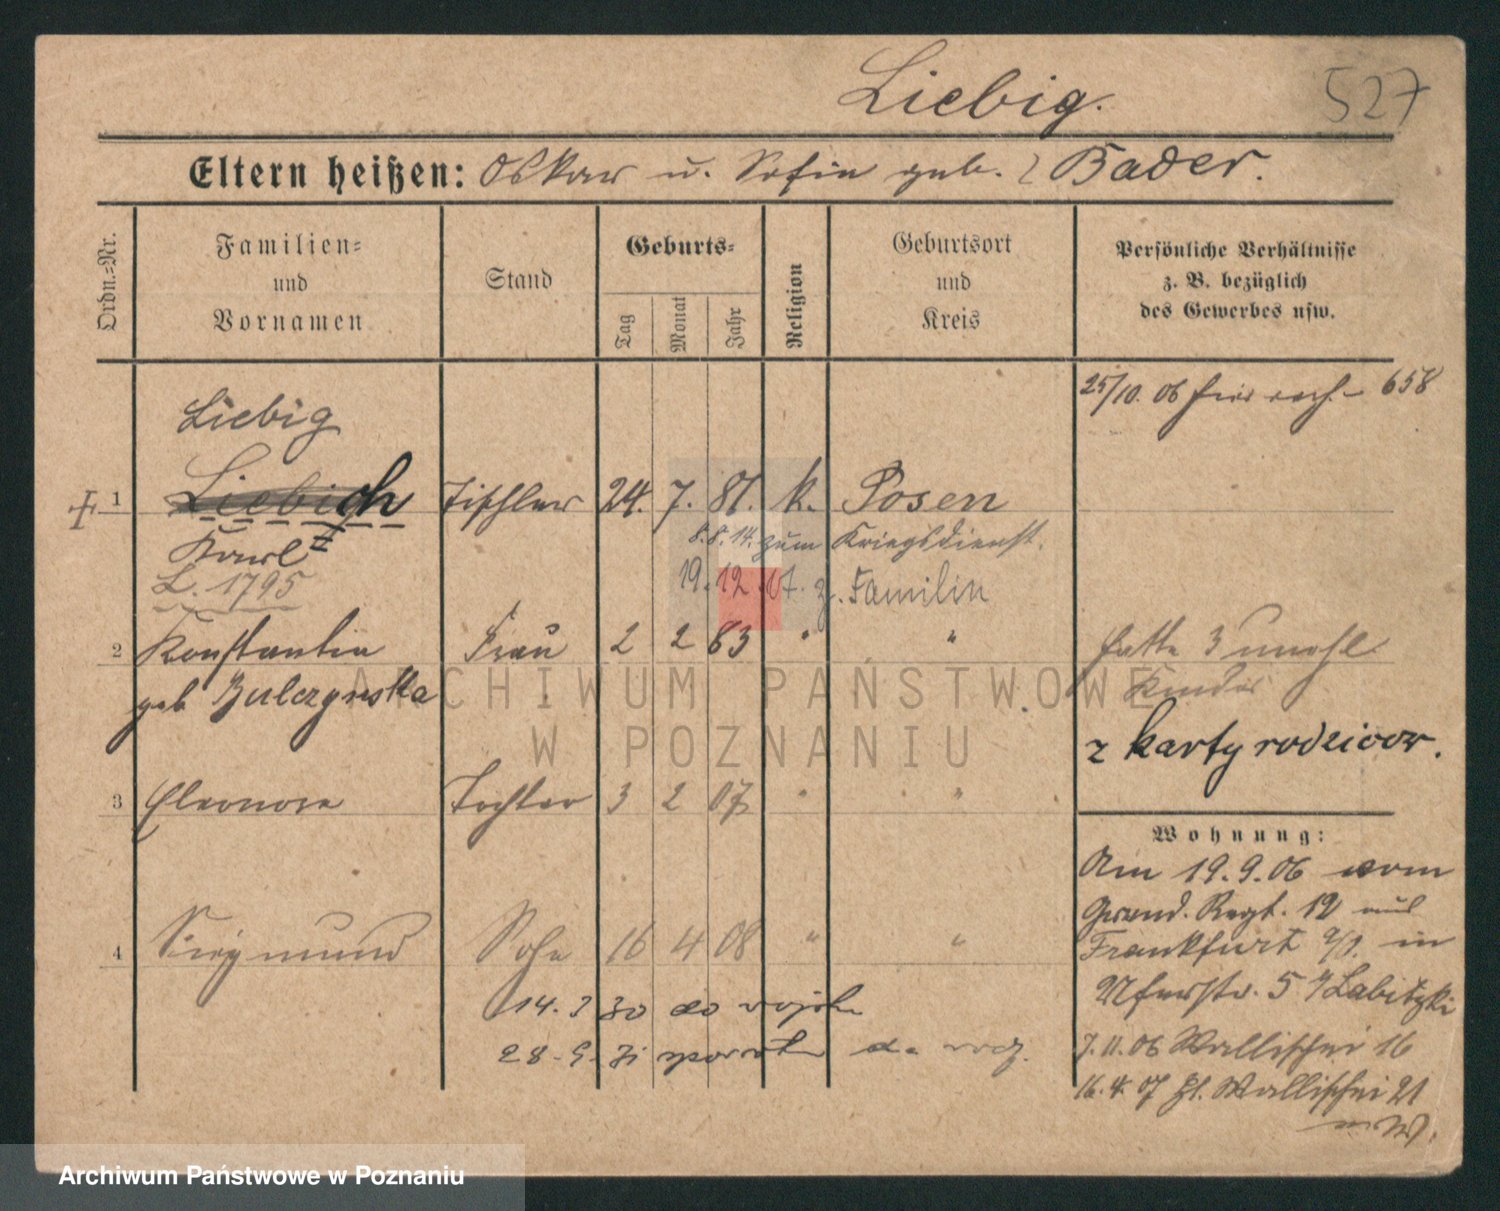 Liebig.
527
Eltern heißen: Oskar u. Sofie geb. Bader.
Ordn.-Nr.
Familien-
und
Vornamen
Stand
Geburts-
Tag
Monat
Jahr
Religion
Geburtsort
und
Kreis
Persönliche Verhältnisse
z. B. bezüglich
des Gewerbes usw.
25/10. 06 658
Liebig
1 Liebich Tischler 24. 7. 81. k. Posen
8.8.14. zum Kriegsdienst.
Karl
L. 1795
19.12.17. z. Familie
2 Konstantia Frau 2 2 83 " "
geb Bulczynska
hatte 3 unehl.
Kinder
z karty rodzicow.
3 Eleonore Tochter 3 2 07 " "
4 Siegmund Sohn 16 4 08 " "
14. 3 30 do wojska
28-9-31 z
Wohnung:
Am 19.9.06 vom
Grend. Regt. 12 aus
Frankfurt a/O. in
Uferstr. 5 b/Labitzki
7.11.06 Wallischei 16
16.4.07 Wallischei 21
ARCHIWUM PAŃSTWOWE
W POZNANIU
Archiwum Państwowe w Poznaniu